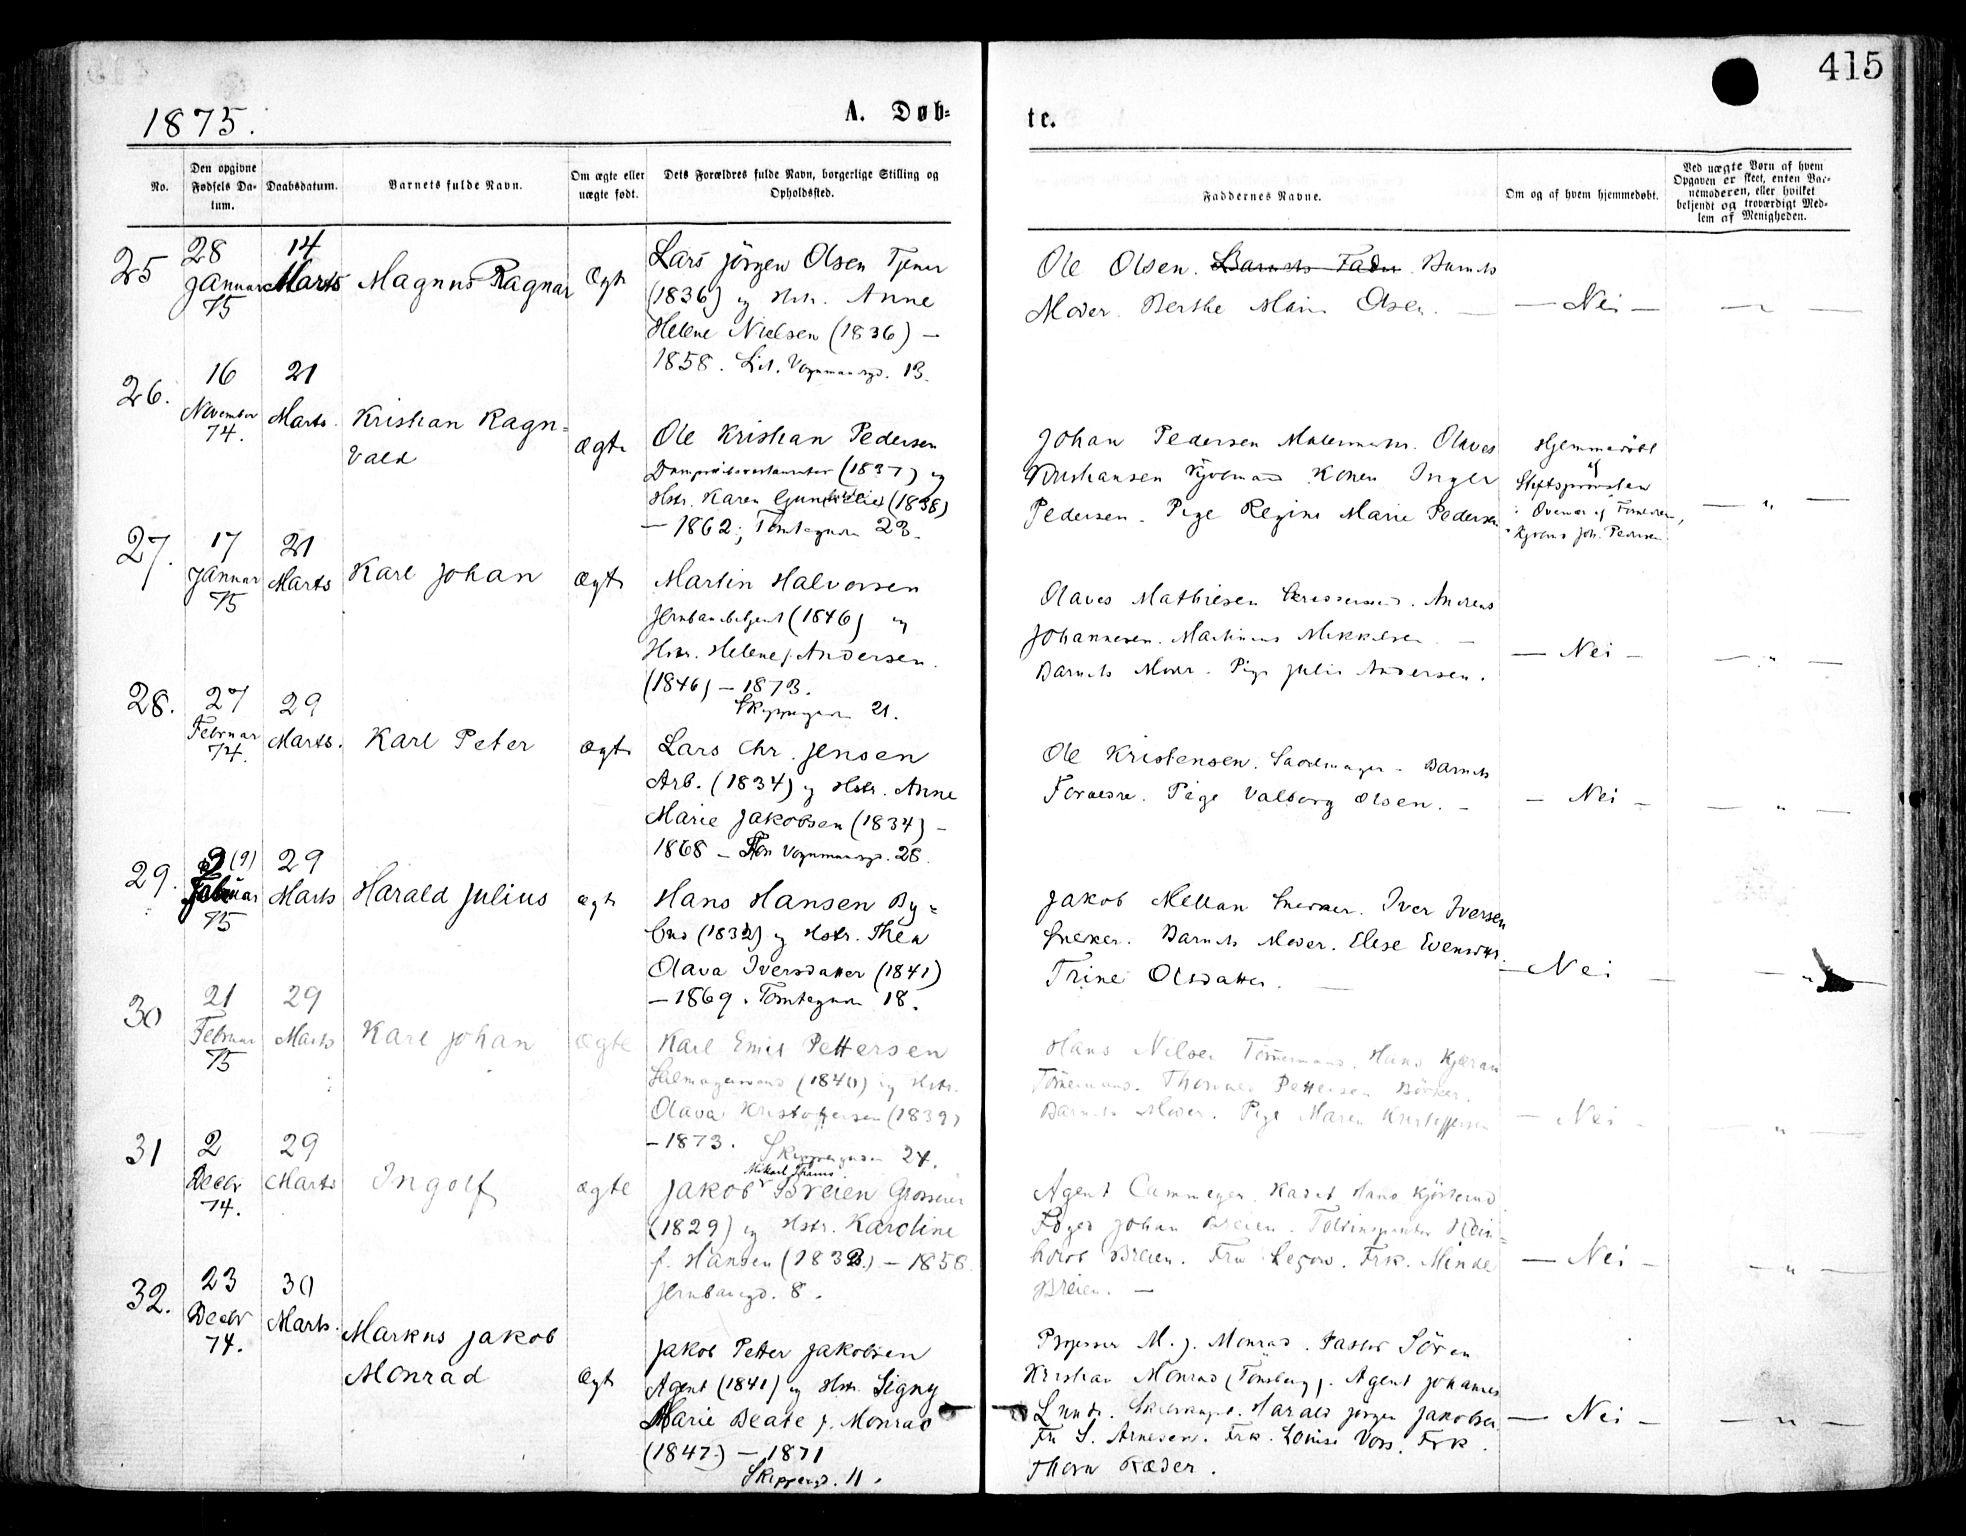 415
1875.
A. Døb-
te.
No.
Den opgivne Fødsels Da-
tum.
Daabsdatum.
Barnets fulde Navn.
Om ægte eller uægte født.
Dets Forældres fulde Navn, borgerlige Stilling og Opholdssted.
Faddernes Navne.
Om og af hvem hjemmedøbt.
Ved uægte Børn af hvem
Opgaven er skeet, enten Bar-
nemoderen, eller hvilket
bekjendt og troværdigt Med-
lem af Menigheden.
25
28
Januar
75
14
Marts
Magnus Ragnar
Ægte
Lars Jörgen Olsen Tjener
(1836) og Hstr. Anne
Helene Nielsen (1836) —
1858. Lil. Vognmansgd. 13.
Ole Olsen. Barnets Fader. Barnets
Moder. Berthe Marie Olsen. —
— Nei —
26.
16
November
74.
21
Marts.
Kristian Ragn-
vald
ægte
Ole Kristian Pedersen
(1837) og
Hstr. Karen (1838)
— 1862; Tomtegaden 23.
Johan Pedersen Olaves
Kristiansen Konen Inger
Pedersen. Pige Regine Marie Pedersen
Hjemmedöbt
af
Stiftsprovsten
Overvær af Forældrene,
Joh. Pedersen
27.
17
Januar
75
21
Marts
Karl Johan
ægte
Martin Halvorsen
Jernbanebetjent (1846) og
Hstr. Helene J. Andersen.
(1846) — 1873.
Skippergaden 21.
Olaves Mathiesen . Andreas
Johannesen. Martinius Mikkelsen. —
Barnets Moder. Pige Julie Andersen.
— Nei —
28.
27
Februar
74.
29
Marts.
Karl Peter
ægte
Lars Chr. Jensen
Arb. (1834) og Hstr. Anne
Marie Jakobsen (1834) —
1868 — Vognmansgd. 28.
Ole Kristensen. Sadelmager. Barnets
Forældre. Pige Valborg Olsen. —
— Nei —
29.
9 (9)
Februar
75
29
Marts
Harald Julius
ægte
Hans Hansen By-
bud (1832) og Hstr. Thea
Olava Iversdatter (1841)
— 1869. Tomtegaden 18.
Jakob Mellan Snedker. Iver Iversen
Snedker. Barnets Moder. Elise Evensdtr.
Trine Olsdatter. —
— Nei —
30
21
Februar
75
29
Marts
Karl Johan
ægte
Karl Emil Pettersen
Seilmagersvend (1840) og Hstr.
Olava Kristoffersen (1839)
— 1873. Skippergaden 24.
Hans Nilsen Tömermand. Hans Kjæran
Tömermand. Thorvald Pettersen Bödker.
Barnets Moder. Pige Maren Kristoffersen
— Nei —
31
2
Decbr
74.
29
Marts
Ingolf
ægte
Mikael Thams
Jakob Breien Grosserer
(1829) og Hstr. Karoline
f. Hansen (1833) — 1858.
Jernbangd. 8.
Agent Cammeyer. Kadet Hans Kjörterud
Foged Johan Breien. Toldinspektör Rein-
hardt Breien. Fru Segow. Frk. Minde
Breien. —
— Nei —
32.
23
Decbr
74.
30
Marts.
Markus Jakob
Monrad
ægte
Jakob Petter Jakobsen
Agent (1841) og Hstr. Signy
Marie Beate f. Monrad
(1847) — 1871
Skippergd. 11.
Professor M. J. Monrad. Pastor Sören
Kristian Monrad (Tönsberg). Agent Johannes
Lund. Harald Jörgen Jakobsen
Fru S. Arnesen. Frk. Louise Voss. Frk.
Thora Ræder.
— Nei —